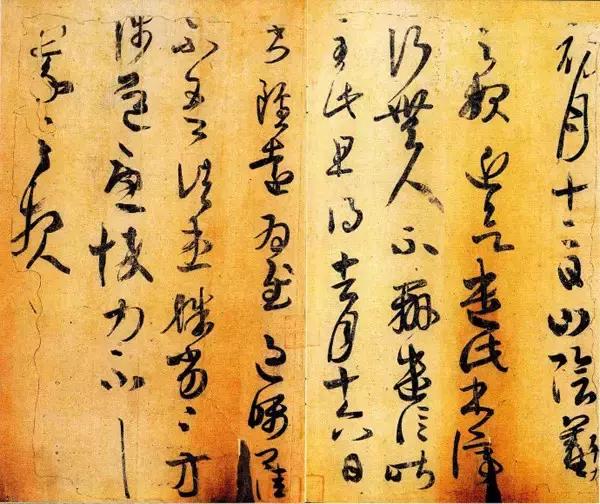 初月十二日山陰羲
之報近欲遣此書停
行無人不辦遣信昨
至此且得去月十六日
書雖遠為慰過囑
不吾諸患殊劣々方
涉道憂悴力不
羲之報